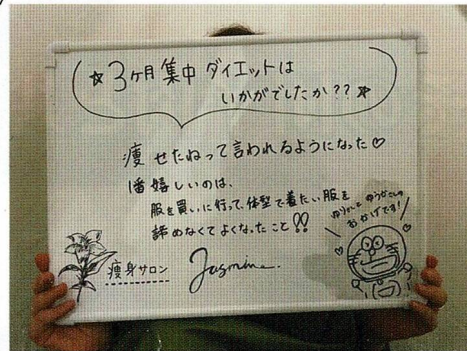 ☆3ヶ月集中ダイエットは
いかがでしたか??☆
痩せたねって言われるようになった♡
1番嬉しいのは、
服を買いに行って、体型で着たい服を
諦めなくてよくなったこと!!
ゆうさんと ゆうかさんの
おかげです!
痩身サロン
Jasmine.